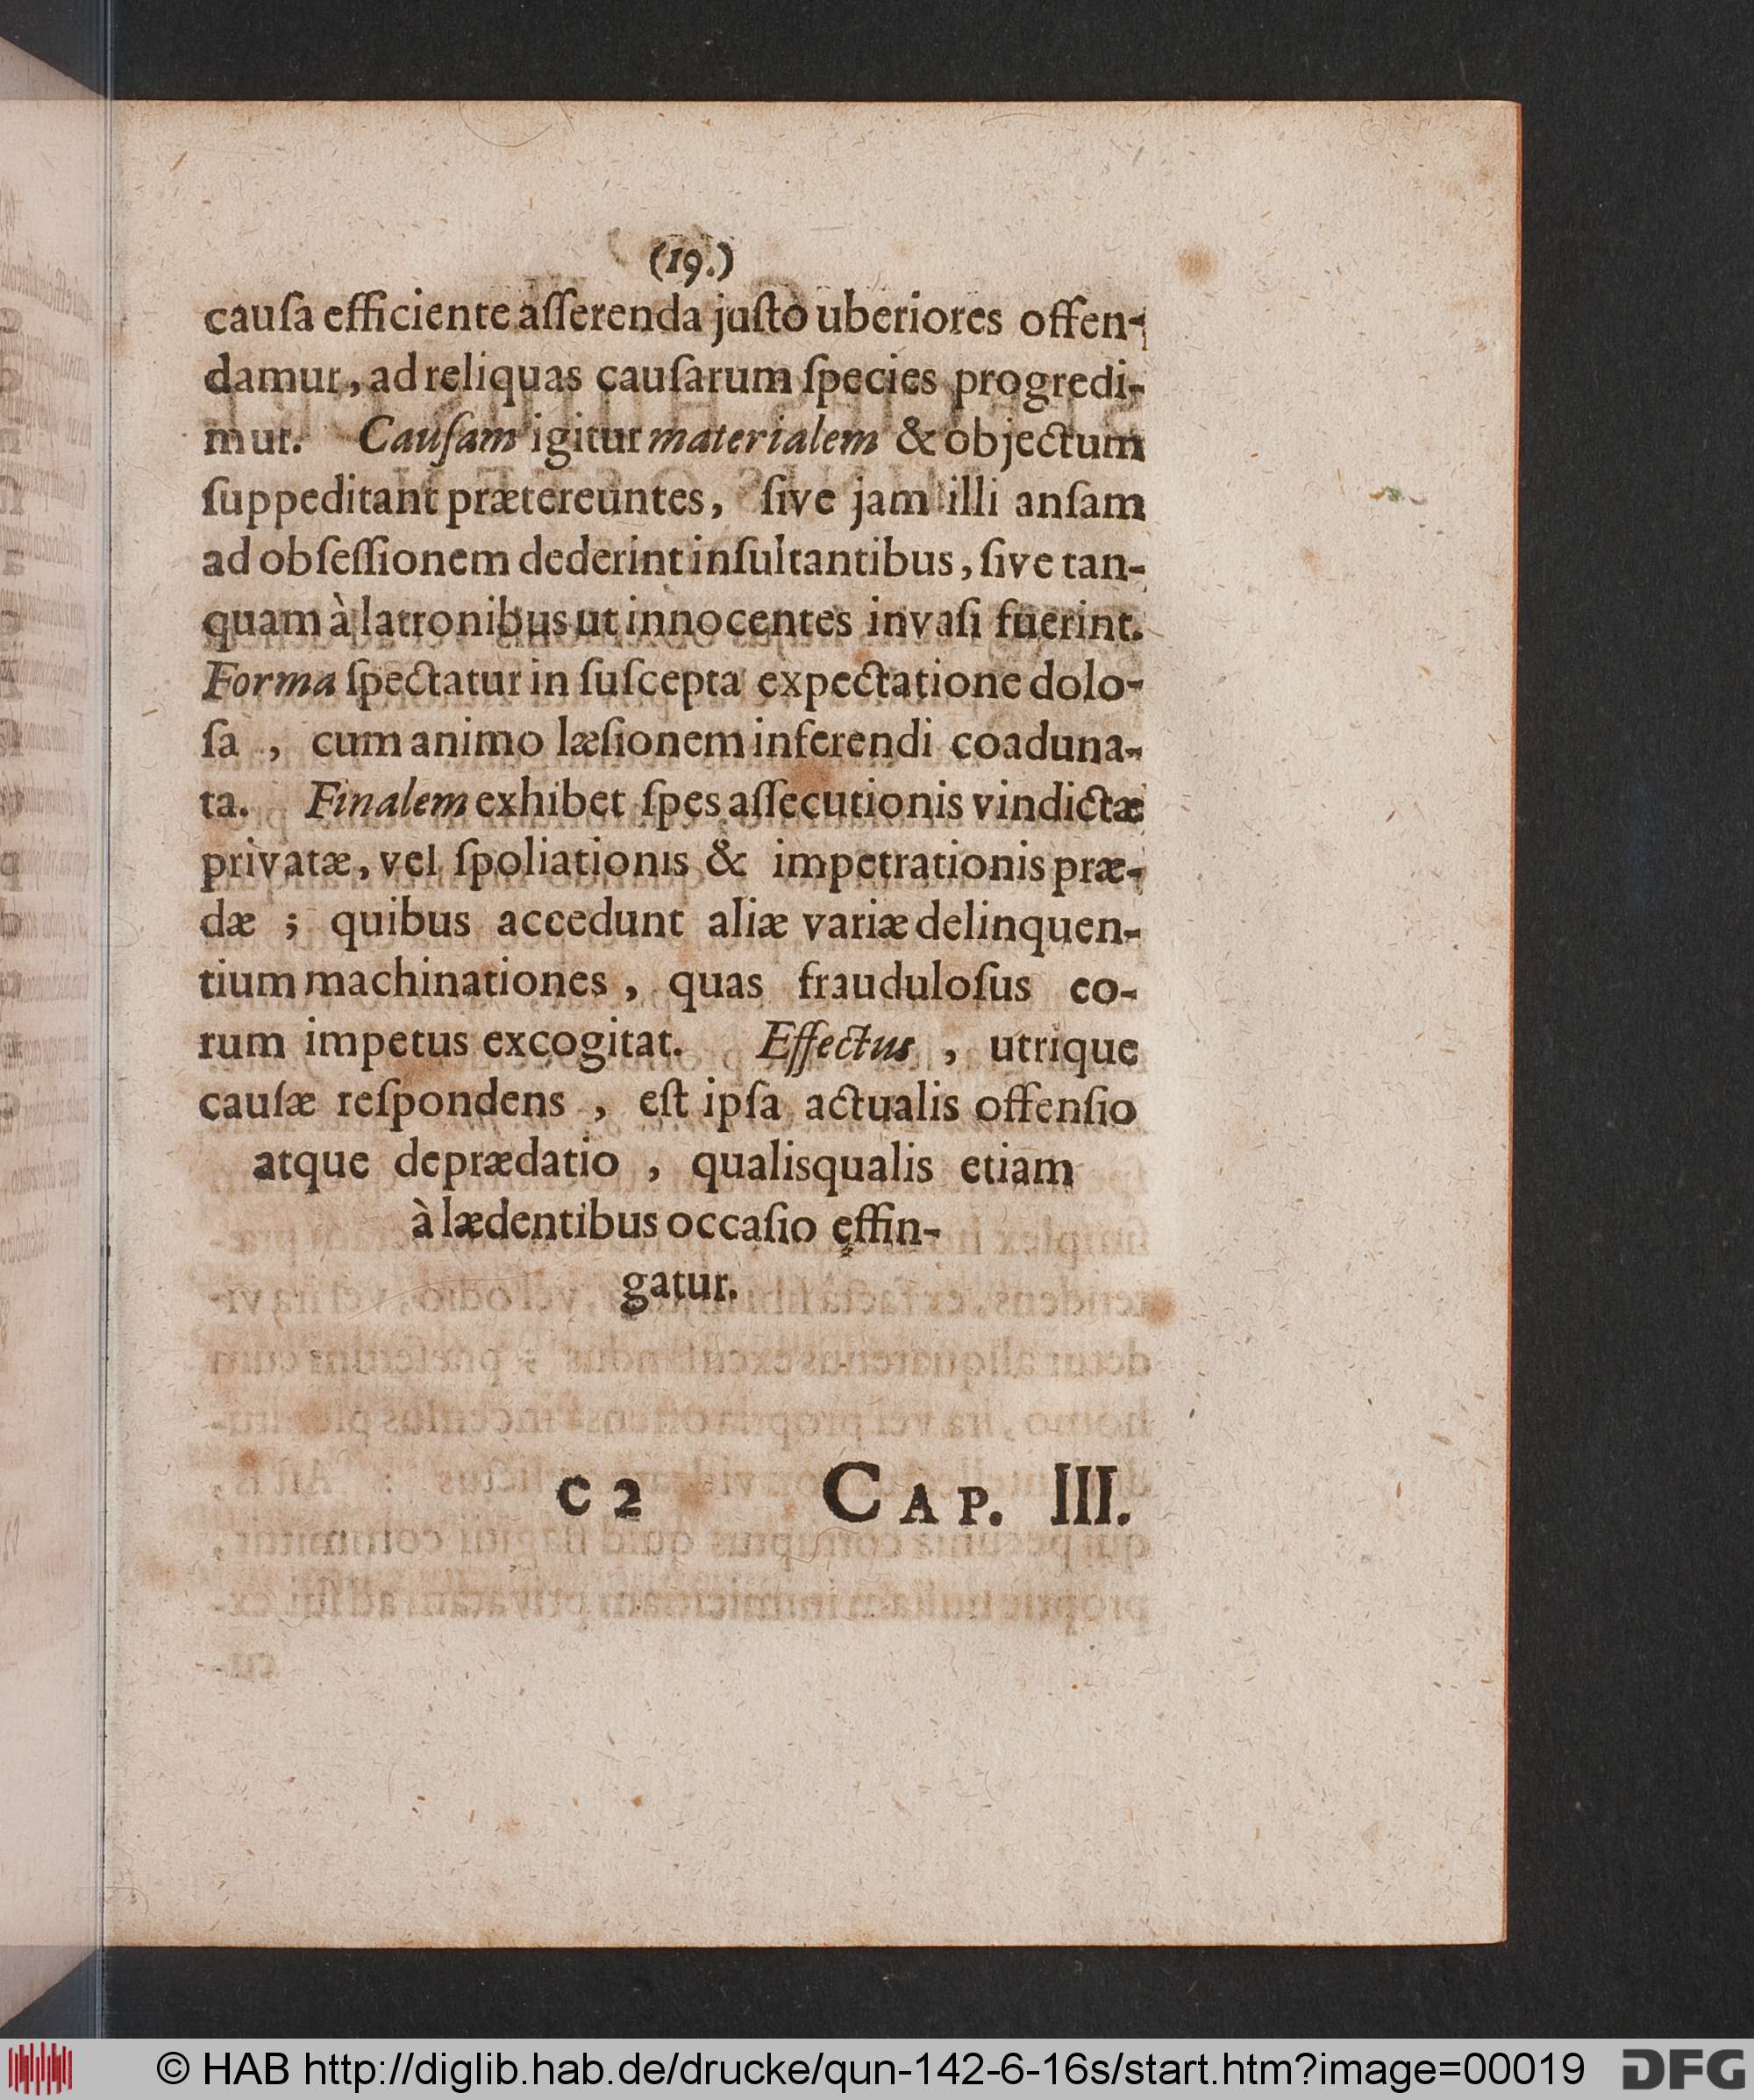 (19.)
cauſa efficiente aſſerenda juſtò uberiores offen-
damur, ad reliquas cauſarum ſpecies progredi-
mur. Cauſam igitur materialem & objectum
ſuppeditant prætereuntes, ſive jam illi anſam
ad obſeſſionem dederint inſultantibus, ſive tan-
quam à latronibus ut innocentes invaſi fuerint.
Forma ſpectatur in ſuſcepta expectatione dolo-
ſa , cum animo læſionem inferendi coaduna-
ta. Finalem exhibet ſpes aſſecutionis vindictæ
privatæ, vel ſpoliationis & impetrationis præ-
dæ ; quibus accedunt aliæ variæ delinquen-
tium machinationes , quas frauduloſus eo-
rum impetus excogitat. Effectus , utrique
cauſæ reſpondens , eſt ipſa actualis offenſio
atque deprædatio , qualisqualis etiam
à lædentibus occaſio effin-
gatur.
C 2 CAP. III.
© HAB http://diglib.hab.de/drucke/qun-142-6-16s/start.htm?image=00019 DFG